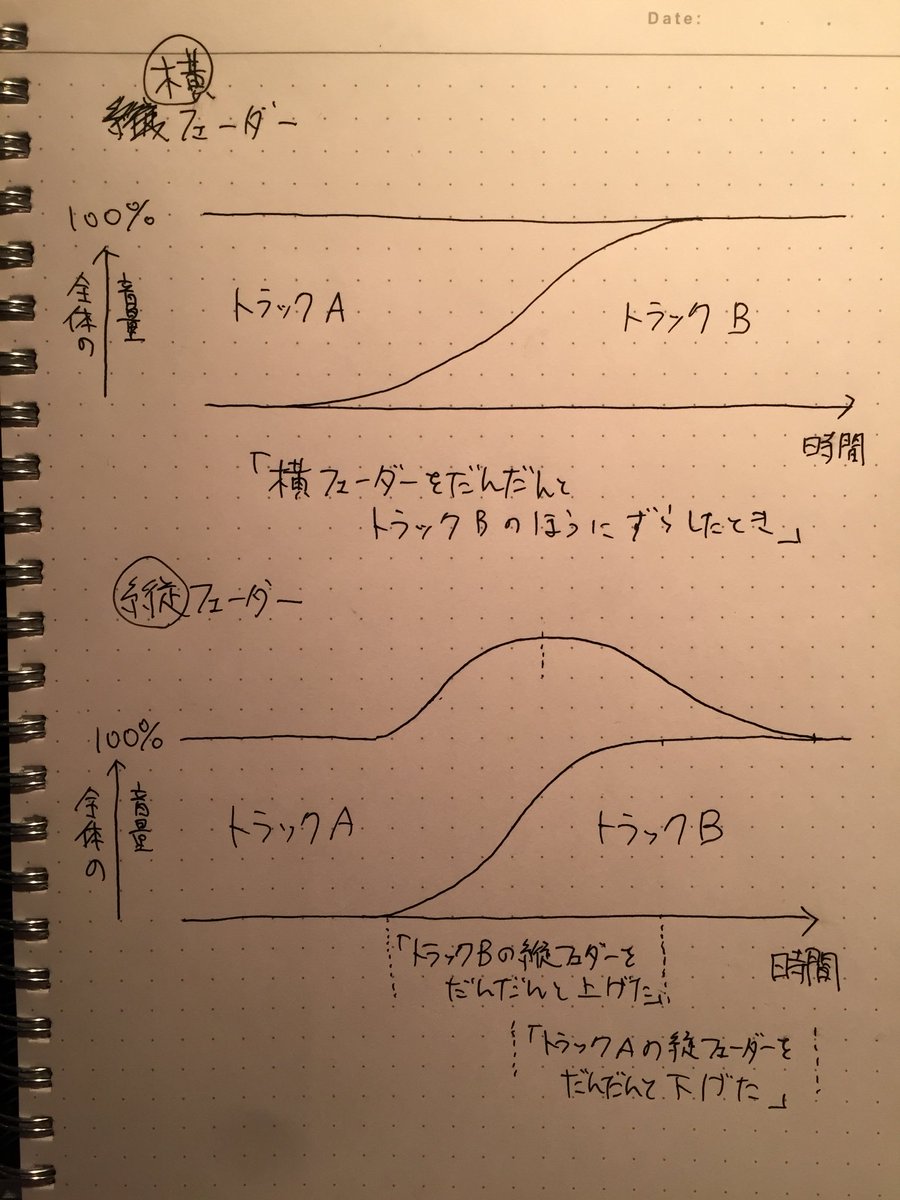 Date: . .
横
フェーダー
100%
全体の
音量
トラックA
トラックB
時間
「横フェーダーをだんだんと
トラックBのほうにずらしたとき」
縦フェーダー
100%
全体の
音量
トラックA
トラックB
時間
「トラックBの縦フェーダーを
だんだんと上げた」
「トラックAの縦フェーダーを
だんだんと下げた」